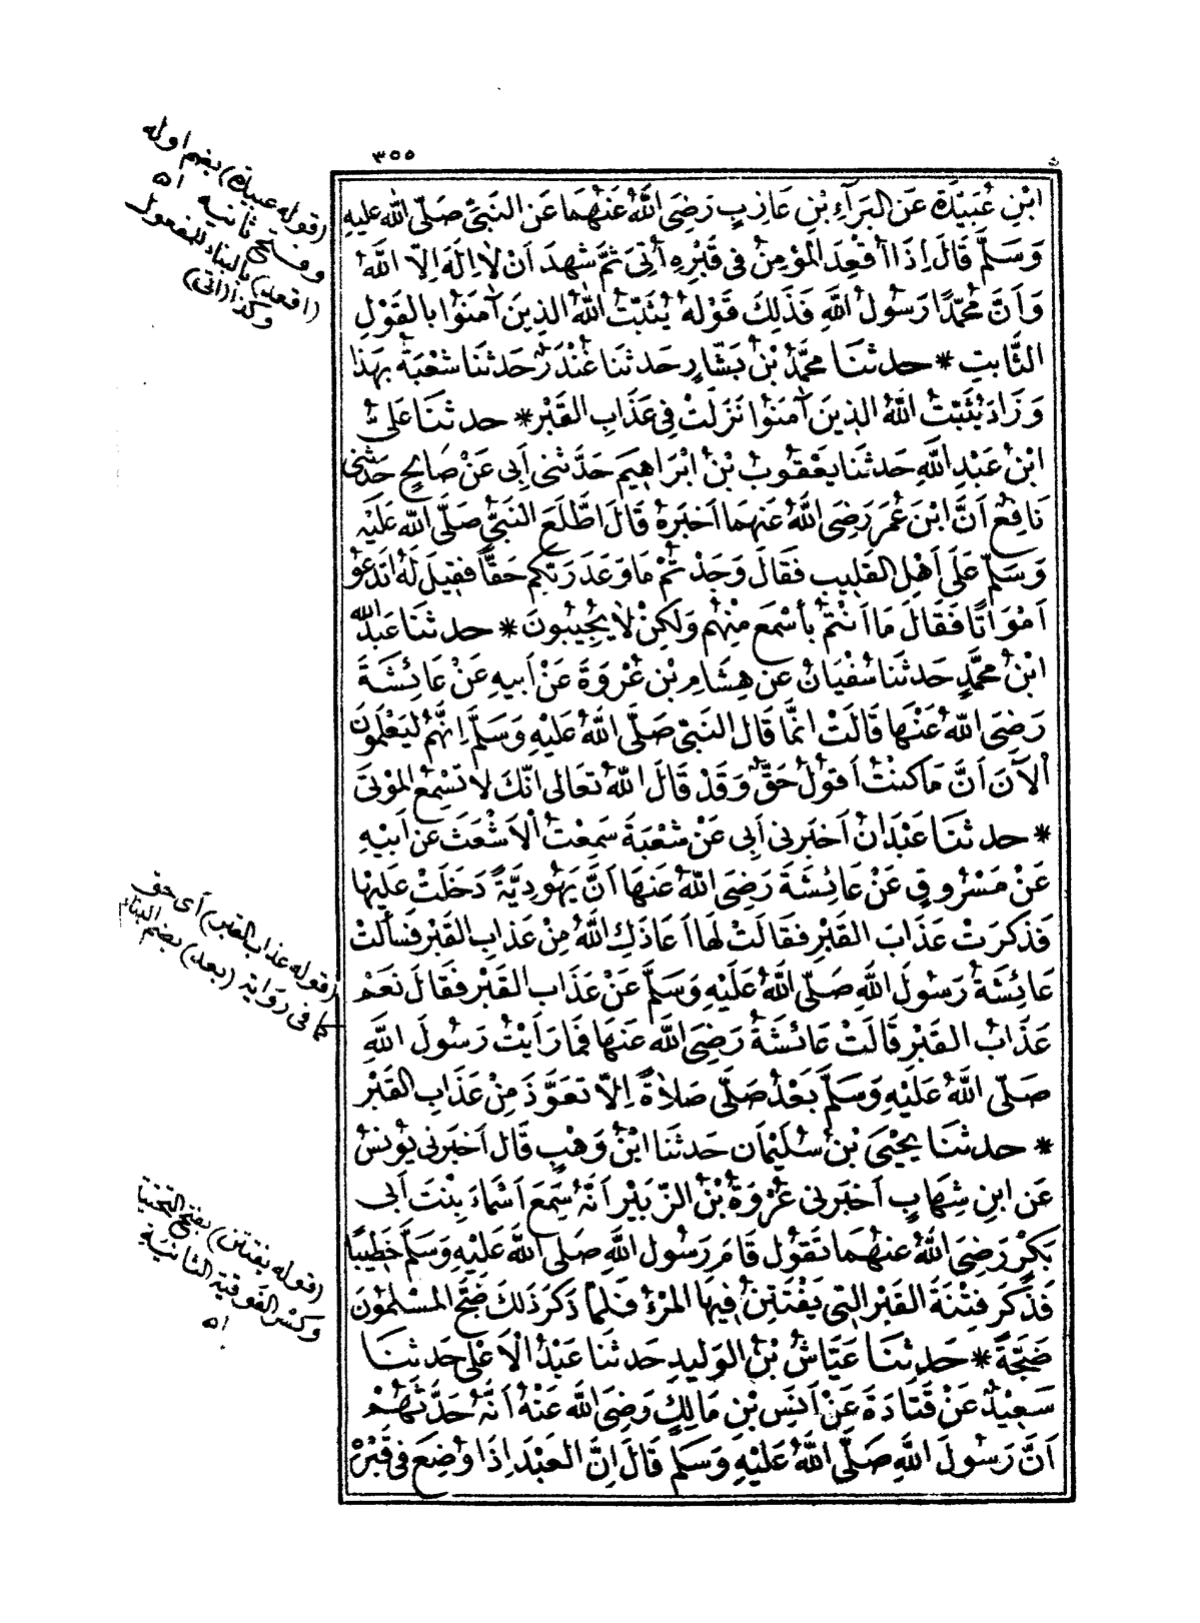 ٣٥٥
ابْنِ عُبَيْدَةَ عَنِ البَرَآءِ بْنِ عَازِبٍ رَضِىَ اللَّهُ عَنْهُمَا عَنِ النَّبِىِّ صَلَّى اللَّهُ عَلَيْهِ
وَسَلَّمَ قَالَ اِذَا اُقْعِدَ المُؤْمِنُ فِى قَبْرِهِ اُتِىَ ثُمَّ شَهِدَ اَنْ لَا اِلَهَ اِلَّا اللَّهُ
وَاَنَّ مُحَمَّدًا رَسُولُ اللَّهِ فَذَلِكَ قَوْلُهُ يُثَبِّتُ اللَّهُ الذِينَ آمَنُوا بِالقَوْلِ
الثَّابِتِ * حدثنَا مُحَمَّدُ بْنُ بَشَّارٍ حَدثنَا غُنْدَرٌ حَدثنَا شُعْبَةُ بِهَذَا
وَزَادَ يُثَبِّتُ اللَّهُ الذِينَ آمَنُوا نَزَلَتْ فِى عَذَابِ القَبْرِ * حدثنَا عَلِىُّ
ابْنُ عَبْدِ اللَّهِ حَدثنَا يَعْقُوبُ بْنُ اِبْرَاهِيمَ حَدَّثَنِى اَبِى عَنْ صَالِحٍ حَدثنى
نَافِعٌ اَنَّ ابْنَ عُمَرَ رَضِىَ اللَّهُ عَنْهُمَا اَخْبَرَهُ قَالَ اطَّلَعَ النَّبِىُّ صَلَّى اللَّهُ عَلَيْهِ
وَسَلَّمَ عَلَى اَهْلِ القَلِيبِ فَقَالَ وَجَدْتُمْ مَا وَعَدَ رَبُّكُمْ حَقًّا فَقِيلَ لَهُ اَتَدْعُو
اَمْوَاتًا فَقَالَ مَا اَنْتُمْ بِاَسْمَعَ مِنْهُمْ وَلَكِنْ لَا يُجِيبُونَ * حدثنَا عَبْدُ اللَّه
ابْنُ مُحَمَّدٍ حَدثنَا سُفْيَانُ عَنْ هِشَامِ بْنِ عُرْوَةَ عَنْ اَبِيهِ عَنْ عَائِشَةَ
رَضِىَ اللَّهُ عَنْهَا قَالَتْ اِنَّمَا قَالَ النَّبِىُّ صَلَّى اللَّهُ عَلَيْهِ وَسَلَّمَ اِنَّهُمْ لَيَعْلَمُونَ
الْآنَ اَنَّ مَا كُنْتُ اَقُولُ حَقٌّ وَقَدْ قَالَ اللَّهُ تَعَالَى اِنَّكَ لَا تُسْمِعُ المَوْتَى
* حدثنَا عَبْدَانُ اَخْبَرَنِى اَبِى عَنْ شُعْبَةَ سَمِعْتُ الْاَشْعَثَ عَنْ اَبِيْهِ
عَنْ مَسْرُوقٍ عَنْ عَائِشَةَ رَضِىَ اللَّهُ عَنْهَا اَنَّ يَهُودِيَّةً دَخَلَتْ عَلَيْهَا
فَذَكَرَتْ عَذَابَ القَبْرِ فَقَالَتْ لَهَا اَعَاذَكِ اللَّهُ مِنْ عَذَابِ القَبْرِ فَسَأَلَتْ
عَائِشَةُ رَسُولَ اللَّهِ صَلَّى اللَّهُ عَلَيْهِ وَسَلَّمَ عَنْ عَذَابِ القَبْرِ فَقَالَ نَعَمْ
عَذَابُ القَبْرِ قَالَتْ عَائِشَةُ رَضِىَ اللَّه عَنْهَا فَمَا رَاَيْتُ رَسُولَ اللَّهِ
صَلَّى اللَّهُ عَلَيْهِ وَسَلَّمَ بَعْدُ صَلَّى صَلَاةً اِلَّا تَعَوَّذَ مِنْ عَذَابِ القَبْرِ
* حدثنَا يَحْيَى بْنُ سُلَيْمَان حَدثنَا ابْنُ وَهْبٍ قَالَ اَخْبَرَنِى يُونُسُ
عَنِ ابْنِ شِهَابٍ اَخْبَرَنِى عُرْوَةُ بْنُ الزُّبَيْرِ اَنَّهُ سَمِعَ اَسْمَاءَ بِنْتَ اَبِى
بَكْرٍ رَضِىَ اللَّهُ عَنْهُمَا تَقُولُ قَامَ رَسُولُ اللَّهِ صَلَّى اللَّهُ عَلَيْهِ وَسَلَّمَ خَطِيبًا
فَذَكَرَ فِتْنَةَ القَبْرِ التِى يَفْتَتِنُ فِيهَا المَرْءُ فَلَمَّا ذَكَرَ ذَلِكَ ضَجَّ المُسْلِمُونَ
ضَجَّةً * حَدثنَا عَيَّاشُ بْنُ الوَلِيدِ حَدثنَا عَبْدُ الْاَعْلَى حَدثنَا
سَعِيْدٌ عَنْ قَتَادَةَ عَنْ اَنَسِ بْنِ مَالِكٍ رَضِىَ اللَّه عَنْهُ اَنَّهُ حَدَّثَهُمْ
اَنَّ رَسُولَ اللَّهِ صَلَّى اللَّهُ عَلَيْهِ وَسَلَّمَ قَالَ اِنَّ العَبْدَ اِذَا وُضِعَ فِى قَبْرِهْ
(قوله عبيدة) بضم اوله
وفتح ثانيه اه
(اقعد) بالبناء للمفعول
وكذا (اتى)
(قوله عذاب القبر) أى حق
كما فى رواية (بعد) بضم البناء
(قوله يفتتن) بفتح التحتية
وكسر الفوقية الثانية
اه